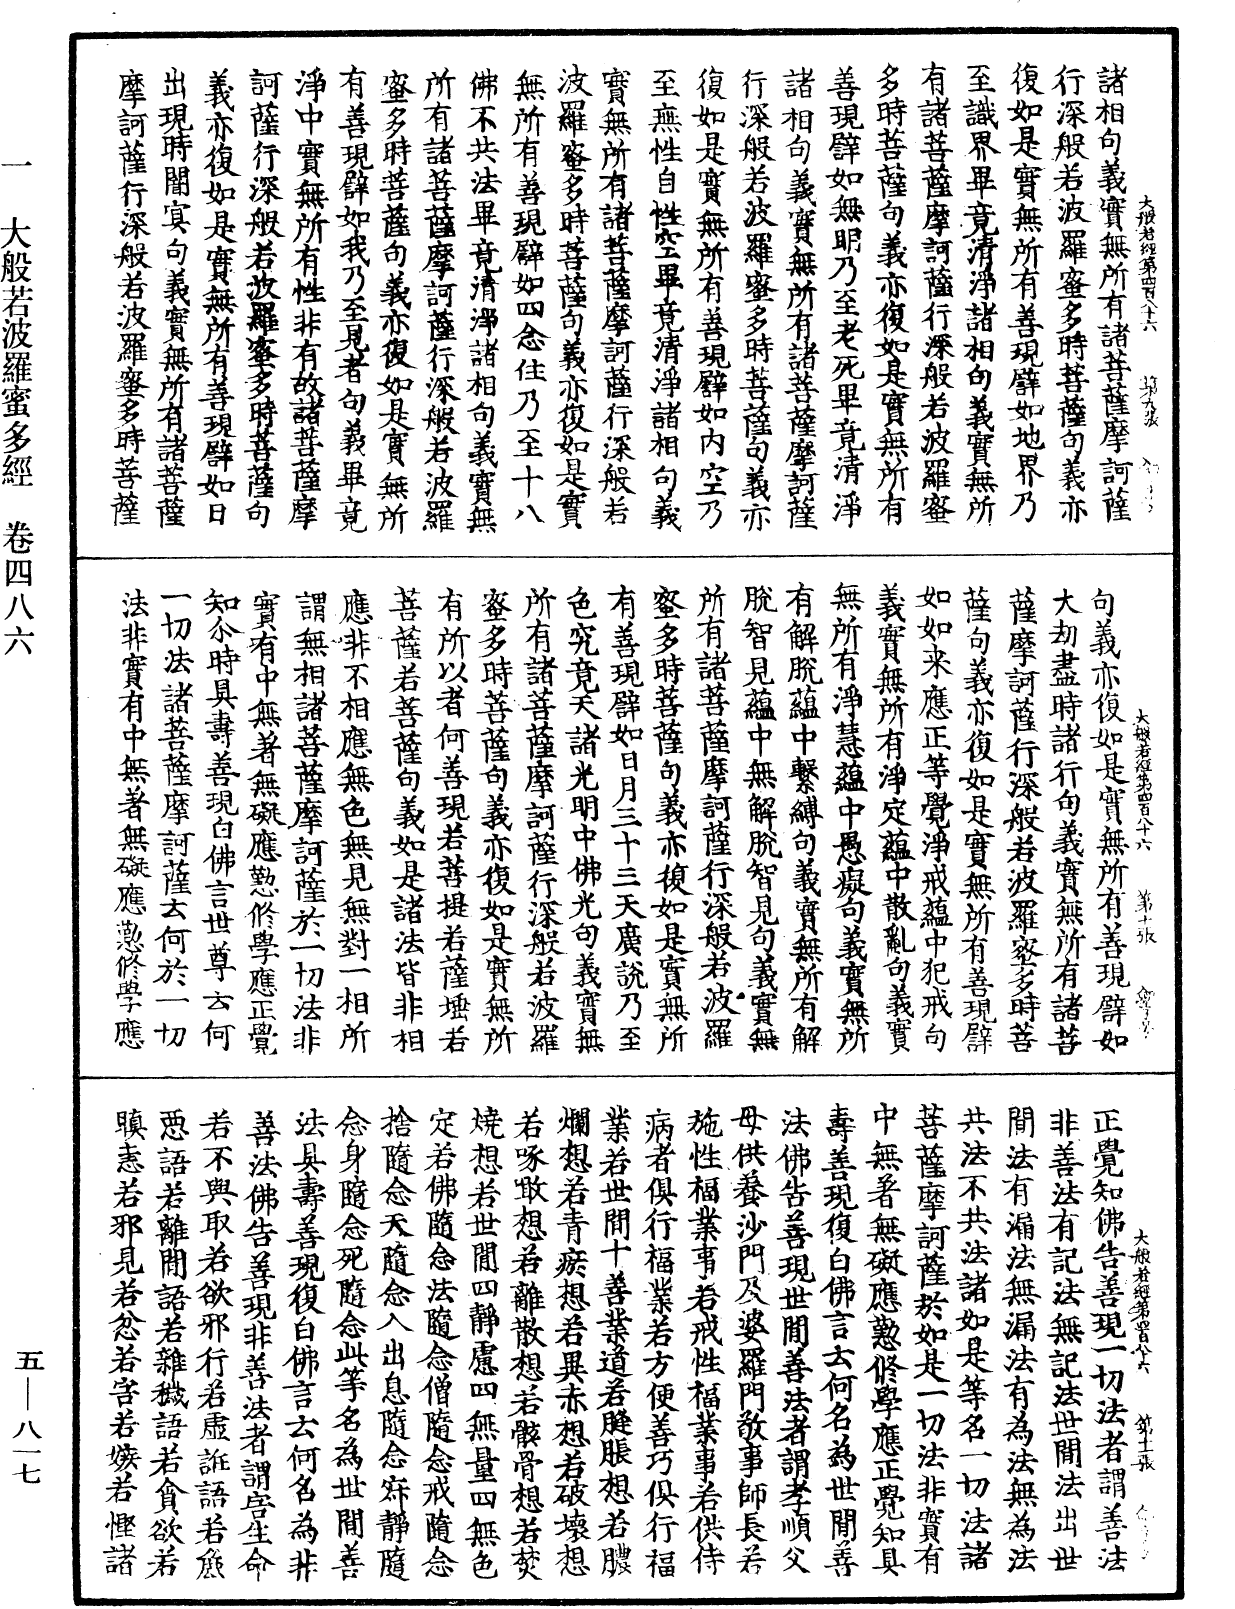 諸相句義實無所有諸菩薩摩訶薩
行深般若波羅蜜多時菩薩句義亦
復如是實無所有善現譬如地界乃
至識界畢竟清淨諸相句義實無所
有諸菩薩摩訶薩行深般若波羅蜜
多時菩薩句義亦復如是實無所有
善現譬如無明乃至老死畢竟清淨
諸相句義實無所有諸菩薩摩訶薩
行深般若波羅蜜多時菩薩句義亦
復如是實無所有善現譬如內空乃
至無性自性空畢竟清淨諸相句義
實無所有諸菩薩摩訶薩行深般若
波羅蜜多時菩薩句義亦復如是實
無所有善現譬如四念住乃至十八
佛不共法畢竟清淨諸相句義實無
所有諸菩薩摩訶薩行深般若波羅
蜜多時菩薩句義亦復如是實無所
有善現譬如我乃至見者句義畢竟
淨中實無所有性非有故諸菩薩摩
訶薩行深般若波羅蜜多時菩薩句
義亦復如是實無所有善現譬如日
出現時闇冥句義實無所有諸菩薩
摩訶薩行深般若波羅蜜多時菩薩
大般若經第四百八十六 第九張
句義亦復如是實無所有善現譬如
大劫盡時諸行句義實無所有諸菩
薩摩訶薩行深般若波羅蜜多時菩
薩句義亦復如是實無所有善現譬
如如來應正等覺淨戒蘊中犯戒句
義實無所有淨定蘊中散亂句義實
無所有淨慧蘊中愚癡句義實無所
有解脫蘊中繫縛句義實無所有解
脫智見蘊中無解脫智見句義實無
所有諸菩薩摩訶薩行深般若波羅
蜜多時菩薩句義亦復如是實無所
有善現譬如日月三十三天廣說乃至
色究竟天諸光明中佛光句義實無
所有諸菩薩摩訶薩行深般若波羅
蜜多時菩薩句義亦復如是實無所
有所以者何善現若菩提若薩埵若
菩薩若菩薩句義如是諸法皆非相
應非不相應無色無見無對一相所
謂無相諸菩薩摩訶薩於一切法非
實有中無著無礙應勤修學應正覺
知尒時具壽善現白佛言世尊云何
一切法諸菩薩摩訶薩云何於一切
法非實有中無著無礙應勤修學應
大般若經第四百八十六 第十張
正覺知佛告善現一切法者謂善法
非善法有記法無記法世間法出世
間法有漏法無漏法有為法無為法
共法不共法諸如是等名一切法諸
菩薩摩訶薩於如是一切法非實有
中無著無礙應勤修學應正覺知具
壽善現復白佛言云何名為世間善
法佛告善現世間善法者謂孝順父
母供養沙門及婆羅門敬事師長若
施性福業事若戒性福業事若供侍
病者俱行福業若方便善巧俱行福
業若世間十善業道若膖脹想若膿
爛想若青瘀想若異赤想若破壞想
若啄噉想若離散想若骸骨想若焚
燒想若世間四靜慮四無量四無色
定若佛隨念法隨念僧隨念戒隨念
捨隨念天隨念入出息隨念寂靜隨
念身隨念死隨念此等名為世間善
法具壽善現復白佛言云何名為非
善法佛告善現非善法者謂害生命
若不與取若欲邪行若虛誑語若麁
惡語若離間語若雜穢語若貪欲若
瞋恚若邪見若忿若害若嫉若慳諸
大般若經第四百八十六 第十一張
一 大般若波羅蜜多經 卷四八六
五—八一七